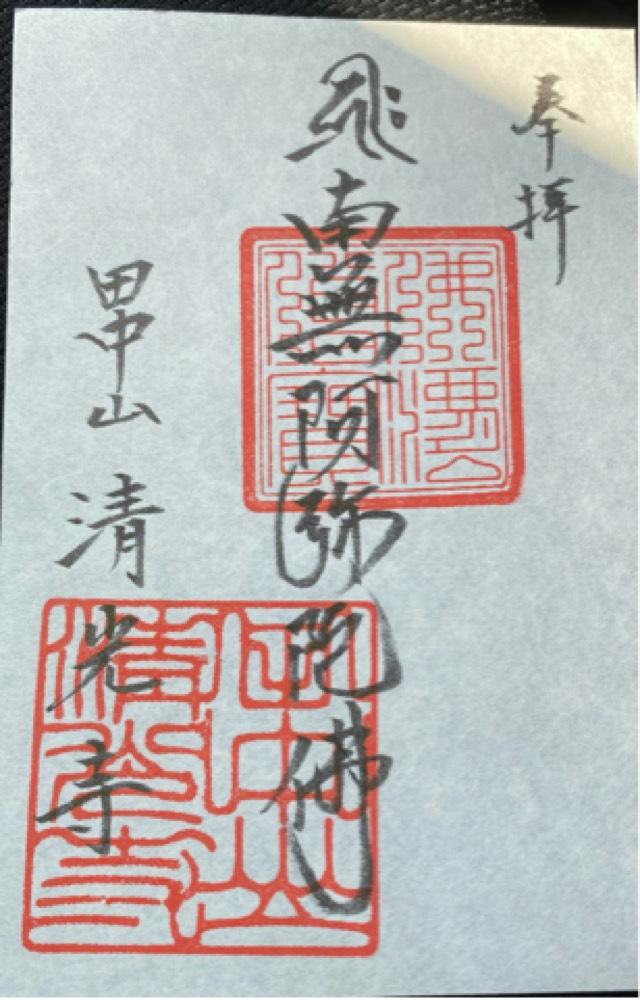 奉拝
南無阿弥陀佛
田中山 清光寺
佛法
僧寶
田中山
清光寺